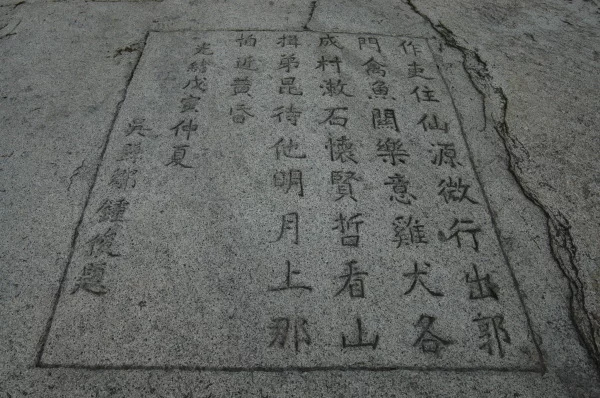 作吏住仙源微行出郭
門禽魚關樂意雞犬各
成村漱石懷賢哲看山
揖弟昆待他明月上那
怕近黃昏
光緒戊寅仲夏
吳縣鄒鍾俊題